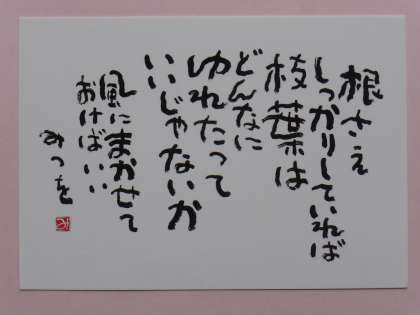 根さえ
しっかりしていれば
枝葉は
どんなに
ゆれたって
いいじゃないか
風にまかせて
おけばいい
みつを